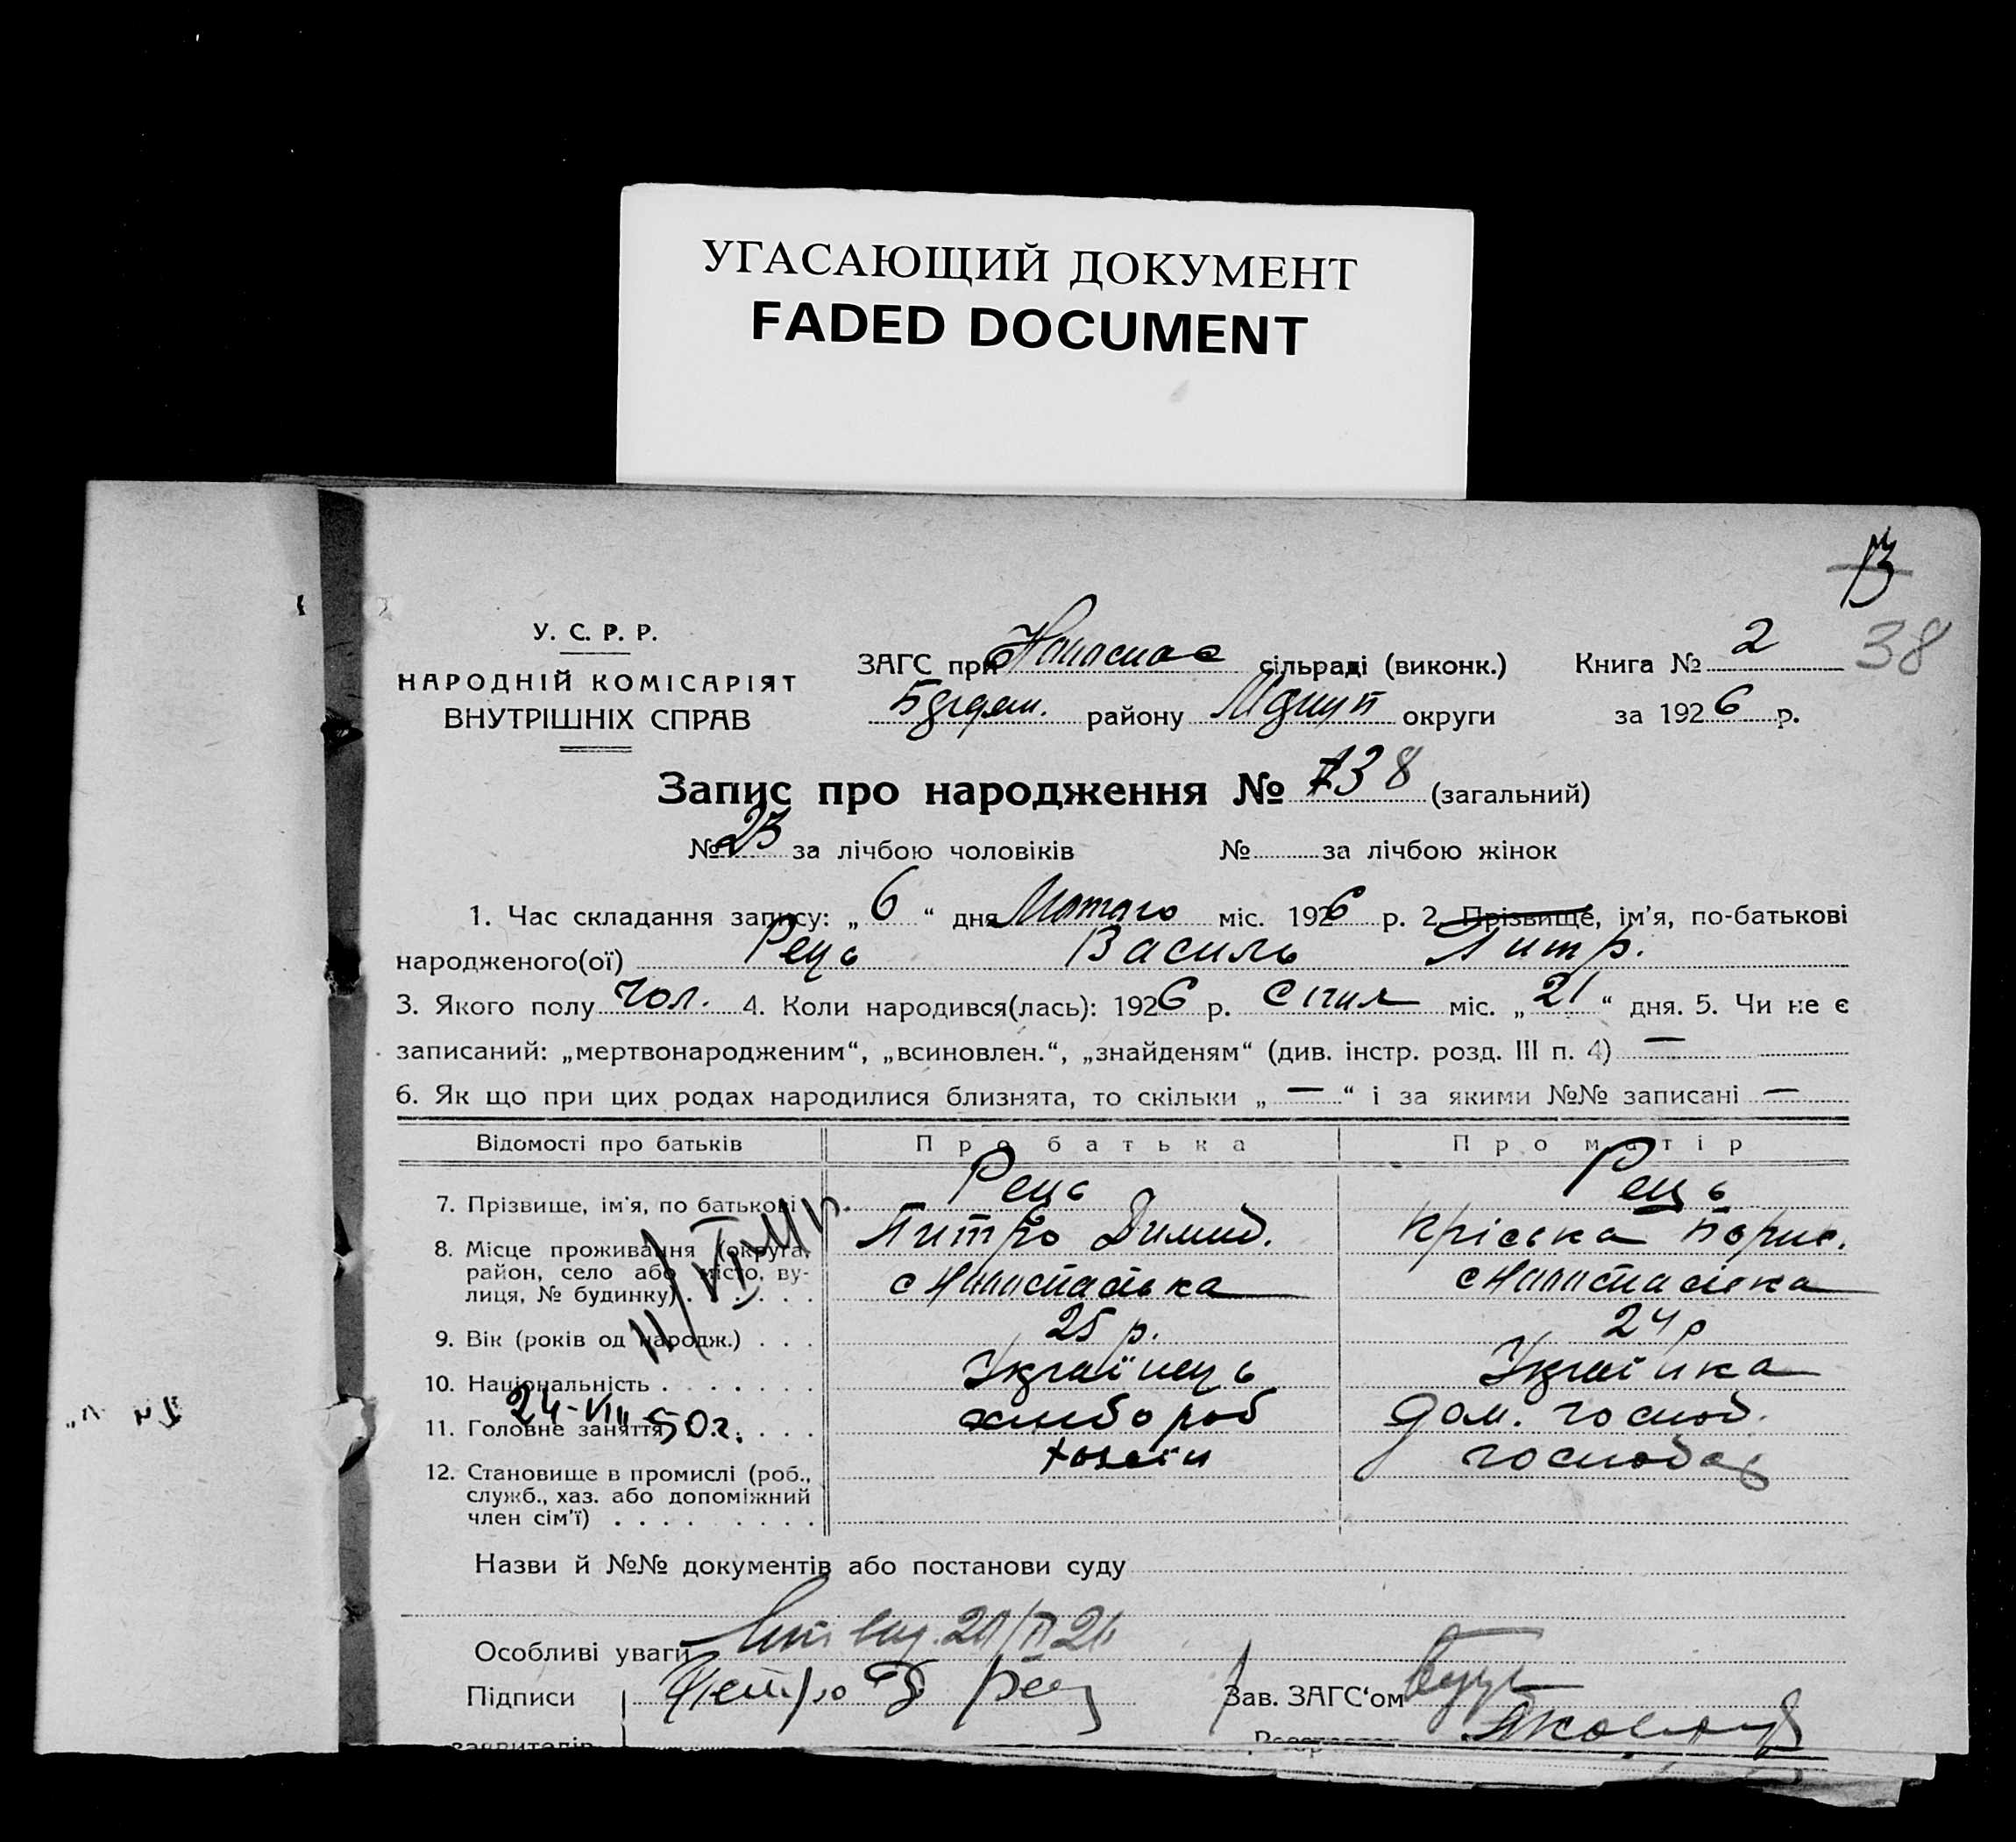 УГАСАЮЩИЙ ДОКУМЕНТ
FADED DOCUMENT
13
38
У. С. Р. Р.
НАРОДНІЙ КОМІСАРІЯТ
ВНУТРІШНІХ СПРАВ
ЗАГС при сільраді (виконк.) Книга № 2
району округи за 1926 р.
Запис про народження № 38 (загальний)
№ 23 за лічбою чоловіків № за лічбою жінок
1. Час складання запису: „ 6 “ дня Лютого міс. 1926 р. 2. Прізвище, ім’я, по-батькові
народженого(ої) Рець Василь Питр.
3. Якого полу Чол. 4. Коли народився(лась): 1926 р. Січня міс. „ 21 “ дня. 5. Чи не є
записаний: „мертвонародженим“, „всиновлен.“, „знайденям“ (див. інстр. розд. III п. 4) —
6. Як що при цих родах народилися близнята, то скільки „ — “ і за якими №№ записані —
Відомості про батьків Про батька Про матір
Рець Рець
7. Прізвище, ім’я, по батькові
Питро Димид. Пріська Борис.
8. Місце проживання (округа,
район, село або місто, ву-
лиця, № будинку) . . . . . .
с Напастівка с Напастівка
9. Вік (років од народж.) . . . 25 р. 24 р
10. Національність . . . . . . . Українець Українка
24-VIII 50г.
11. Головне заняття . . . . . хлибороб дом. господ.
12. Становище в промислі (роб.,
служб., хаз. або допоміжний
член сім’ї) . . . . . . . . .
хазяїн господар
Назви й №№ документів або постанови суду
Особливі уваги
Підписи Петро Д Рец Зав. ЗАГС‘ом
заявителів